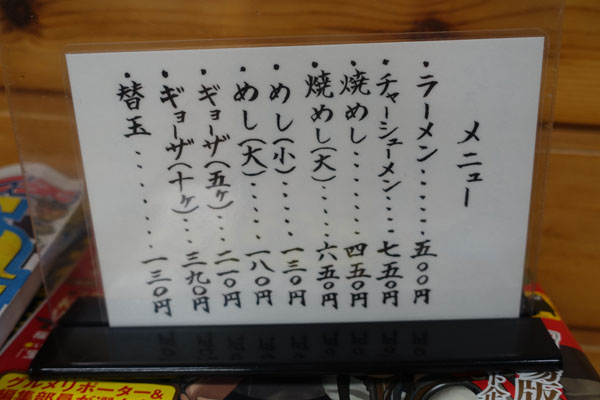 メニュー
・ラーメン・・・・・・五〇〇円
・チャーシューメン・・・・七五〇円
・焼めし・・・・・四五〇円
・焼めし(大)・・・・六五〇円
・めし(小)・・・・一三〇円
・めし(大)・・・・一八〇円
・ギョーザ(五ヶ)・・・二一〇円
・ギョーザ(十ヶ)・・・三九〇円
・替玉・・・・・・・一三〇円
グルメリポーター&